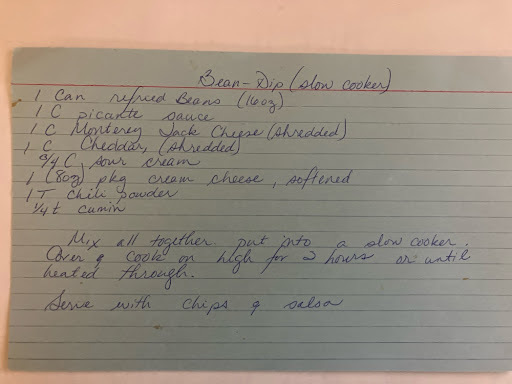 Bean-Dip (slow cooker)
1 Can refried Beans (16oz)
1 C picante sauce
1 C Monterey Jack Cheese (shredded)
1 C Cheddar, (shredded)
3/4 C sour cream
1 (8oz) pkg cream cheese, softened
1 T chili powder
1/4 t cumin
Mix all together. put into a slow cooker.
Cover & cook on high for 2 hours or until
heated through.
Serve with chips & salsa